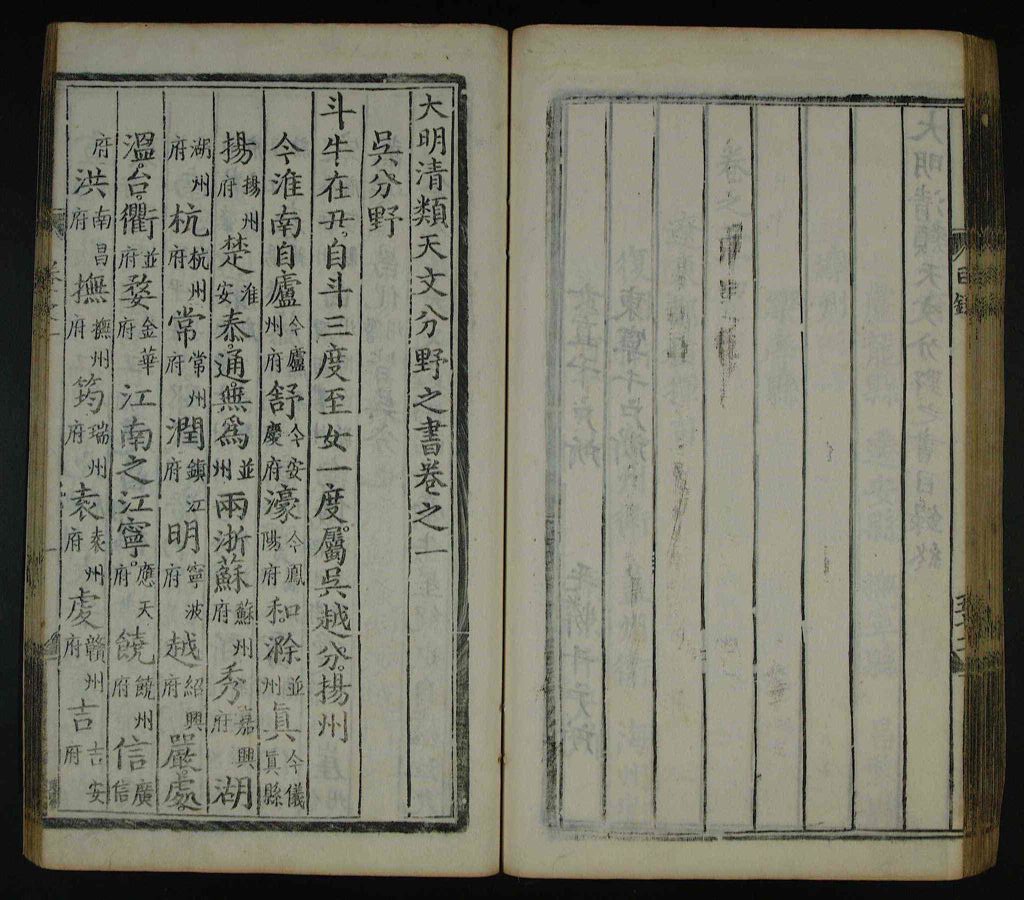 目錄
大明清類天文分野之書卷之一
吳分野
斗牛在丑。自斗三度至女一度。屬吳越分。揚州
今淮南自廬今廬州府舒今安慶府濠今鳳陽府和。滁並州真今儀真縣
揚揚州府楚淮安泰。通。無爲並州兩浙蘇蘇州府秀嘉興府湖
湖州府杭杭州府常常州府潤鎮江府明寧波府越紹興府嚴。處。
溫。台。衢並府婺金華府江南之江寧。應天府饒饒州府信廣信
府洪南昌府撫撫州府筠瑞州府袁袁州府虔贛州府吉吉安府